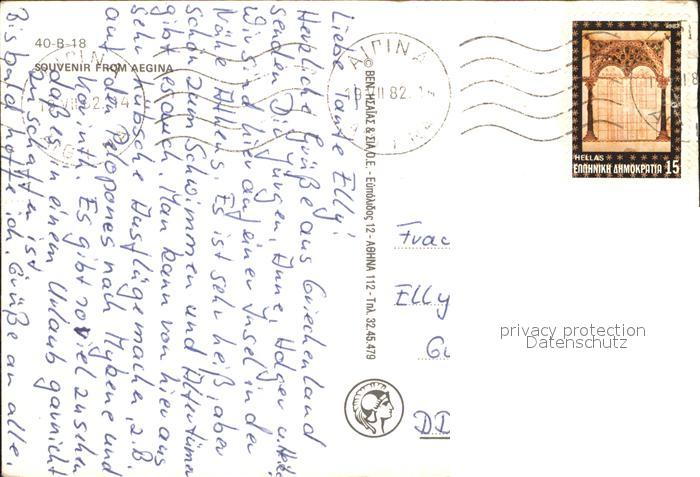 40-B-18
SOUVENIR FROM AEGINA
Liebe Tante Elly!
Herzliche Grüße aus Griechenland
senden Dir Jürgen, Anne, Holger u.
Wir sind hier auf einer Insel in der
Nähe Athens. Es ist sehr heiß, aber
schön zum Schwimmen und Altertümer
gibt es auch. Man kann von hier aus
sehr hübsche Ausflüge machen, z.B.
auf den Peloponnes nach Mykene und
Korinth. Es gibt so viel zu sehen
daß es in einem Urlaub garnicht
zu schaffen ist.
Bis bald hoffe ich. Grüße an alle.
© ΒΕΝ. ΗΣΑΪΑΣ & ΣΙΑ Ο.Ε. - Εὐπόλιδος 12 - ΑΘΗΝΑ 112 - Τηλ. 32.45.479
ΑΙΓΙΝΑ
82
HELLAS
ΕΛΛΗΝΙΚΗ ΔΗΜΟΚΡΑΤΙΑ 15
Frau
Elly
DD
privacy protection
Datenschutz